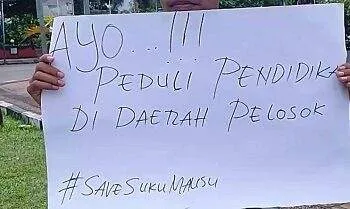 AYO...!!!
PEDULI PENDIDIKA
DI DAERAH PELOSOK
#SAVESUKUMAUSU